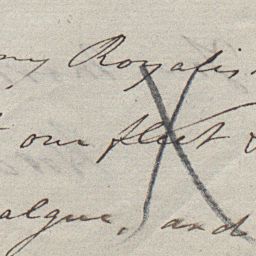 my Royalis
our fleet &
algue, and